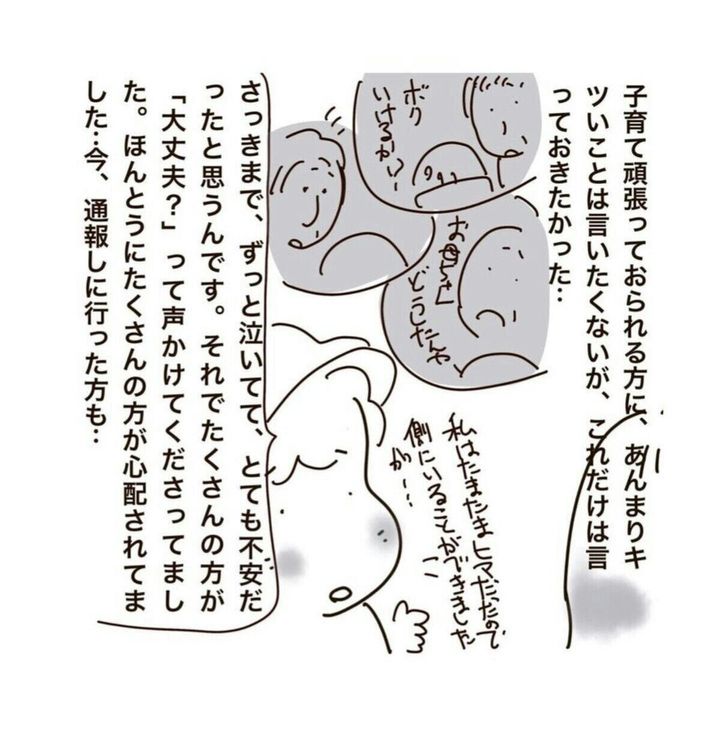 子育て頑張っておられる方に、あんまりキ
ツいことは言いたくないが、これだけは言
っておきたかった…
ボク
いけるか?
お母ちゃん
どうしたんや
私はたまたまヒマだったので
側にいることができました
が…
さっきまで、ずっと泣いてて、とても不安だ
ったと思うんです。それでたくさんの方が
「大丈夫?」って声かけてくださってまし
た。ほんとうにたくさんの方が心配されてま
した…今、通報しに行った方も…